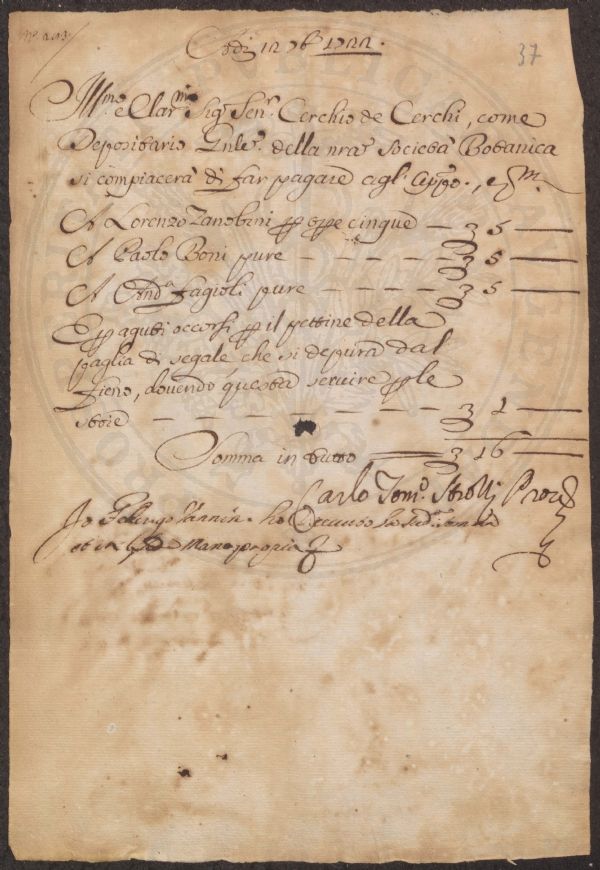 37
Adì 12 9bre 1722.
Illmo e Clarmo Sigr Senr. Cerchio de Cerchi, come
Depositario Gnle. della nra Società Botanica
si compiacerà di far pagare agl' Appo.,
A Lorenzo Zanobini p opre cinque — 5 —
A Paolo Boni pure — — — — — 5 —
A Anda Fagioli pure — — — — 5 —
E p aguti occorsi p il pettine della
paglia di segale che si depura dal
fieno, dovendo questa servire p le
stoie — — — — — — — 1 —
Somma in tutto — 16 —
Carlo Tomo. Strozzi Provre
Io ho la sudta somma
Mano propria